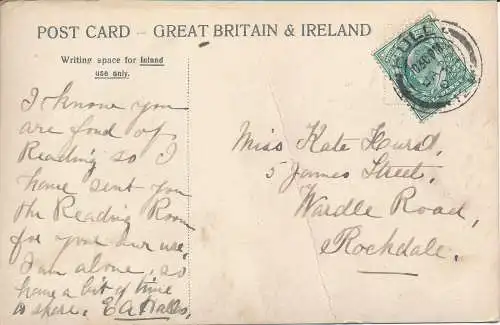 POST CARD – GREAT BRITAIN & IRELAND
Writing space for Inland
use only.
I know you
are fond of
Reading so I
have sent you
the Reading Room
for your own use,
I am alone, so
have a bit of time
to spare. E A
Miss Kate Hurst,
5 James Street,
Wardle Road,
Rochdale.